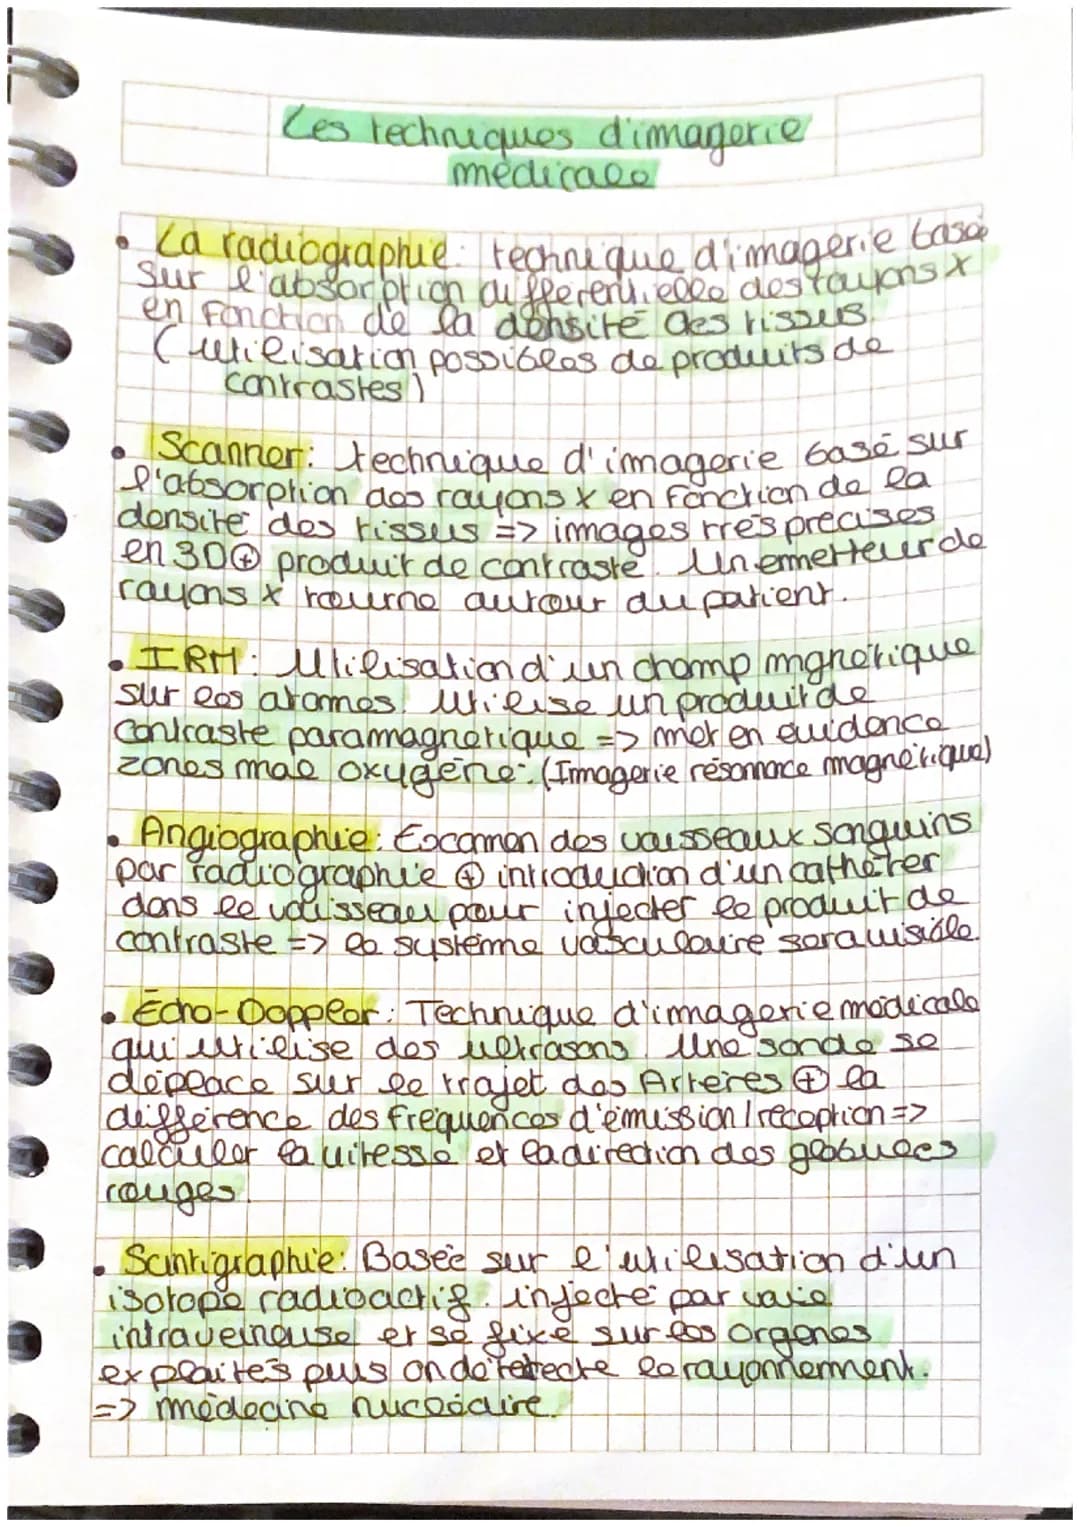 Les techniques d'imagerie
médicale
• La radiographie : technique d'imagerie basée
sur l'absorption différentielle des rayons X
en fonction de la densité des tissus.
( utilisation possibles de produits de
contrastes )
• Scanner : technique d'imagerie basé sur
l'absorption des rayons X en fonction de la
densité des tissus => images très précises
en 3D ⊕ produit de contraste. Un emetteur de
rayons X tourne autour du patient.
• IRM : Utilisation d'un champ mgnétique
sur les atomes. Utilise un produit de
contraste paramagnétique => met en évidence
zones mal oxygéne. (Imagerie résonnace magnétique)
• Angiographie : Examen des vaisseaux sanguins
par radiographie ⊕ introduction d'un cathéter
dans le vaisseau pour injecter le produit de
contraste => le système vasculaire sera visible.
• Écho-Doppler : Technique d'imagerie médicale
qui utilise des ultrasons. Une sonde se
déplace sur le trajet des Artères ⊕ la
différence des fréquences d'émission / réception =>
calculer la vitesse et la direction des globules
rouges.
• Scintigraphie : Basée sur l'utilisation d'un
isotope radioactif. injecté par voie
intraveineuse et se fixe sur les orgenes
exploités puis on détetecte le rayonnement.
=> médecine nucléaire.